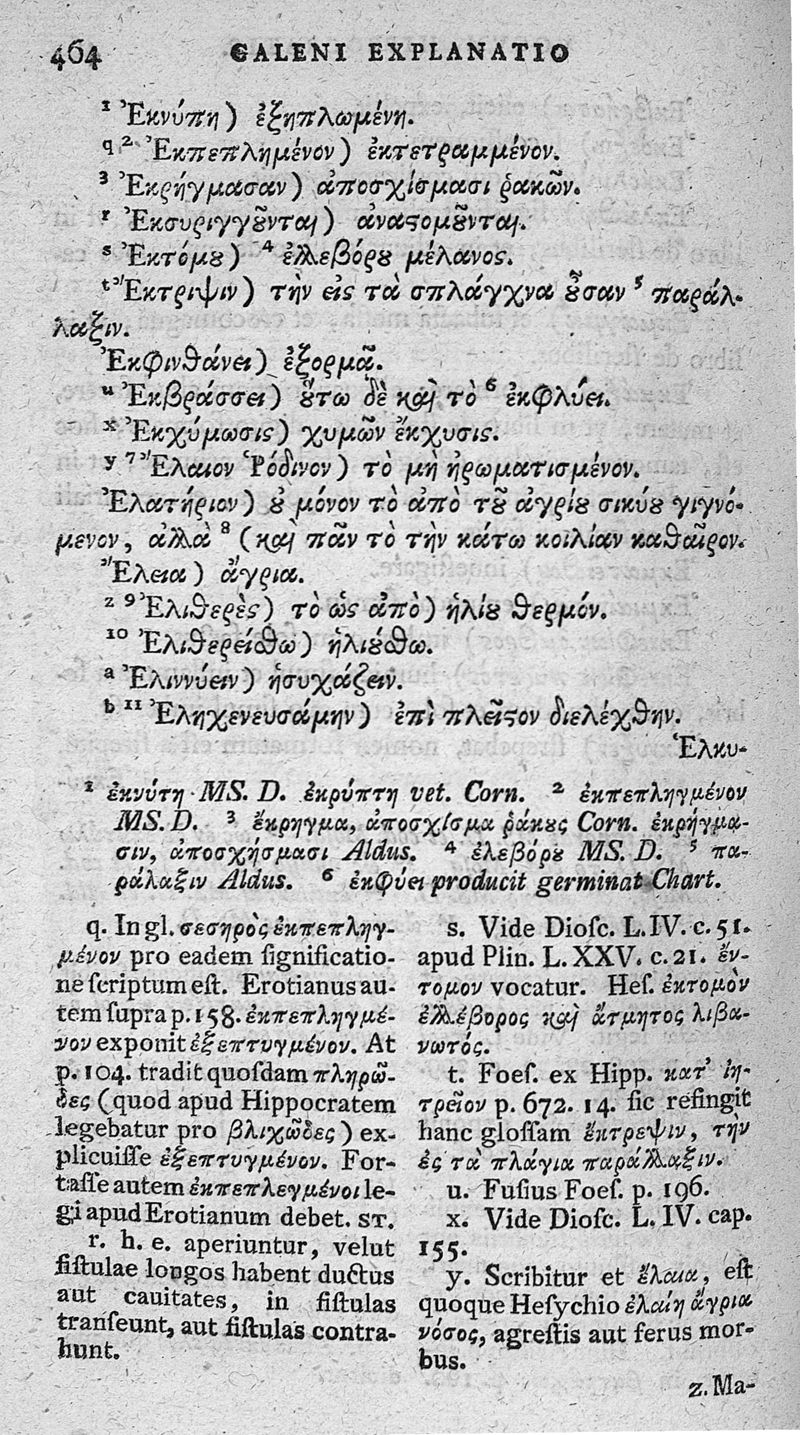 464 GALENI EXPLANATIO
¹ Ἐκνύπη) ἐξηπλωμένη.
q ² Ἐκπεπλημένον) ἐκτετραμμένον.
³ Ἐκρήγμασαν) ἀποσχίσμασι ῥακῶν.
r Ἐκσυριγγοῦνται) ἀναστομοῦνται.
s Ἐκτόμου) ⁴ ἐλλεβόρου μέλανος.
t Ἔκτριψιν) τὴν εἰς τὰ σπλάγχνα οὖσαν ⁵ παράλ-
λαξιν.
Ἐκφινθάνει) ἐξορμᾷ.
u Ἐκβράσσει) οὕτω δὲ καὶ τὸ ⁶ ἐκφλύει.
x Ἐκχύμωσις) χυμῶν ἔκχυσις.
y ⁷ Ἔλαιον Ῥόδινον) τὸ μὴ ἠρωματισμένον.
Ἐλατήριον) οὐ μόνον τὸ ἀπὸ τοῦ ἀγρίου σικύου γιγνό-
μενον, ἀλλὰ ⁸ (καὶ πᾶν τὸ τὴν κάτω κοιλίαν καθαῖρον.
Ἔλεια) ἄγρια.
z ⁹ Ἐλιθερὲς) τὸ ὡς ἀπὸ) ἡλίου θερμόν.
¹⁰ Ἐλιθερείσθω) ἡλιούσθω.
a Ἐλιννύειν) ἡσυχάζειν.
b ¹¹ Ἐληχενευσάμην) ἐπὶ πλεῖστον διελέχθην.
Ἑλκυ-
¹ ἐκνύτη MS. D. ἐκρύπτη vet. Corn. ² ἐκπεπληγμένον
MS. D. ³ ἔκρηγμα, ἀποσχίσμα ῥάκους Corn. ἐκρήγμα-
σιν, ἀποσχήσμασι Aldus. ⁴ ἐλεβόρου MS. D. ⁵ πα-
ράλαξιν Aldus. ⁶ ἐκφύει producit germinat Chart.
q. In gl. σεσηρὸς ἐκπεπληγ-
μένον pro eadem ſignificatio-
ne ſcriptum eſt. Erotianus au-
tem ſupra p. 158. ἐκπεπληγμέ-
νον exponit ἐξεπτυγμένον. At
p. 104. tradit quoſdam πληρῶ-
δες (quod apud Hippocratem
legebatur pro βλιχῶδες) ex-
plicuiſſe ἐξεπτυγμένον. For-
taſſe autem ἐκπεπλεγμένοι le-
gi apud Erotianum debet. ST.
r. h. e. aperiuntur, velut
fiſtulae longos habent ductus
aut cauitates, in fiſtulas
tranſeunt, aut fiſtulas contra-
hunt.
s. Vide Dioſc. L. IV. c. 51.
apud Plin. L. XXV. c. 21. ἔν-
τομον vocatur. Heſ. ἐκτομὸν
ἐλλέβορος καὶ ἄτμητος λιβα-
νωτός.
t. Foeſ. ex Hipp. κατ' ἰη-
τρεῖον p. 672. 14. ſic refingit
hanc gloſſam ἔκτρεψιν, τὴν
ἐς τὰ πλάγια παράλλαξιν.
u. Fuſius Foeſ. p. 196.
x. Vide Dioſc. L. IV. cap.
155.
y. Scribitur et ἔλαια, eſt
quoque Heſychio ἐλαίη ἄγρια
νόσος, agreſtis aut ferus mor-
bus.
z. Ma-